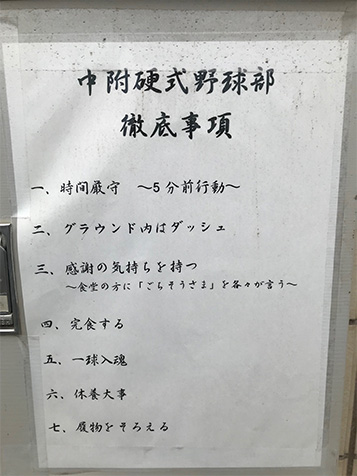 中附硬式野球部
徹底事項
一、時間厳守　～5分前行動～
二、グラウンド内はダッシュ
三、感謝の気持ちを持つ
～食堂の方に「ごちそうさま」を各々が言う～
四、完食する
五、一球入魂
六、休養大事
七、履物をそろえる